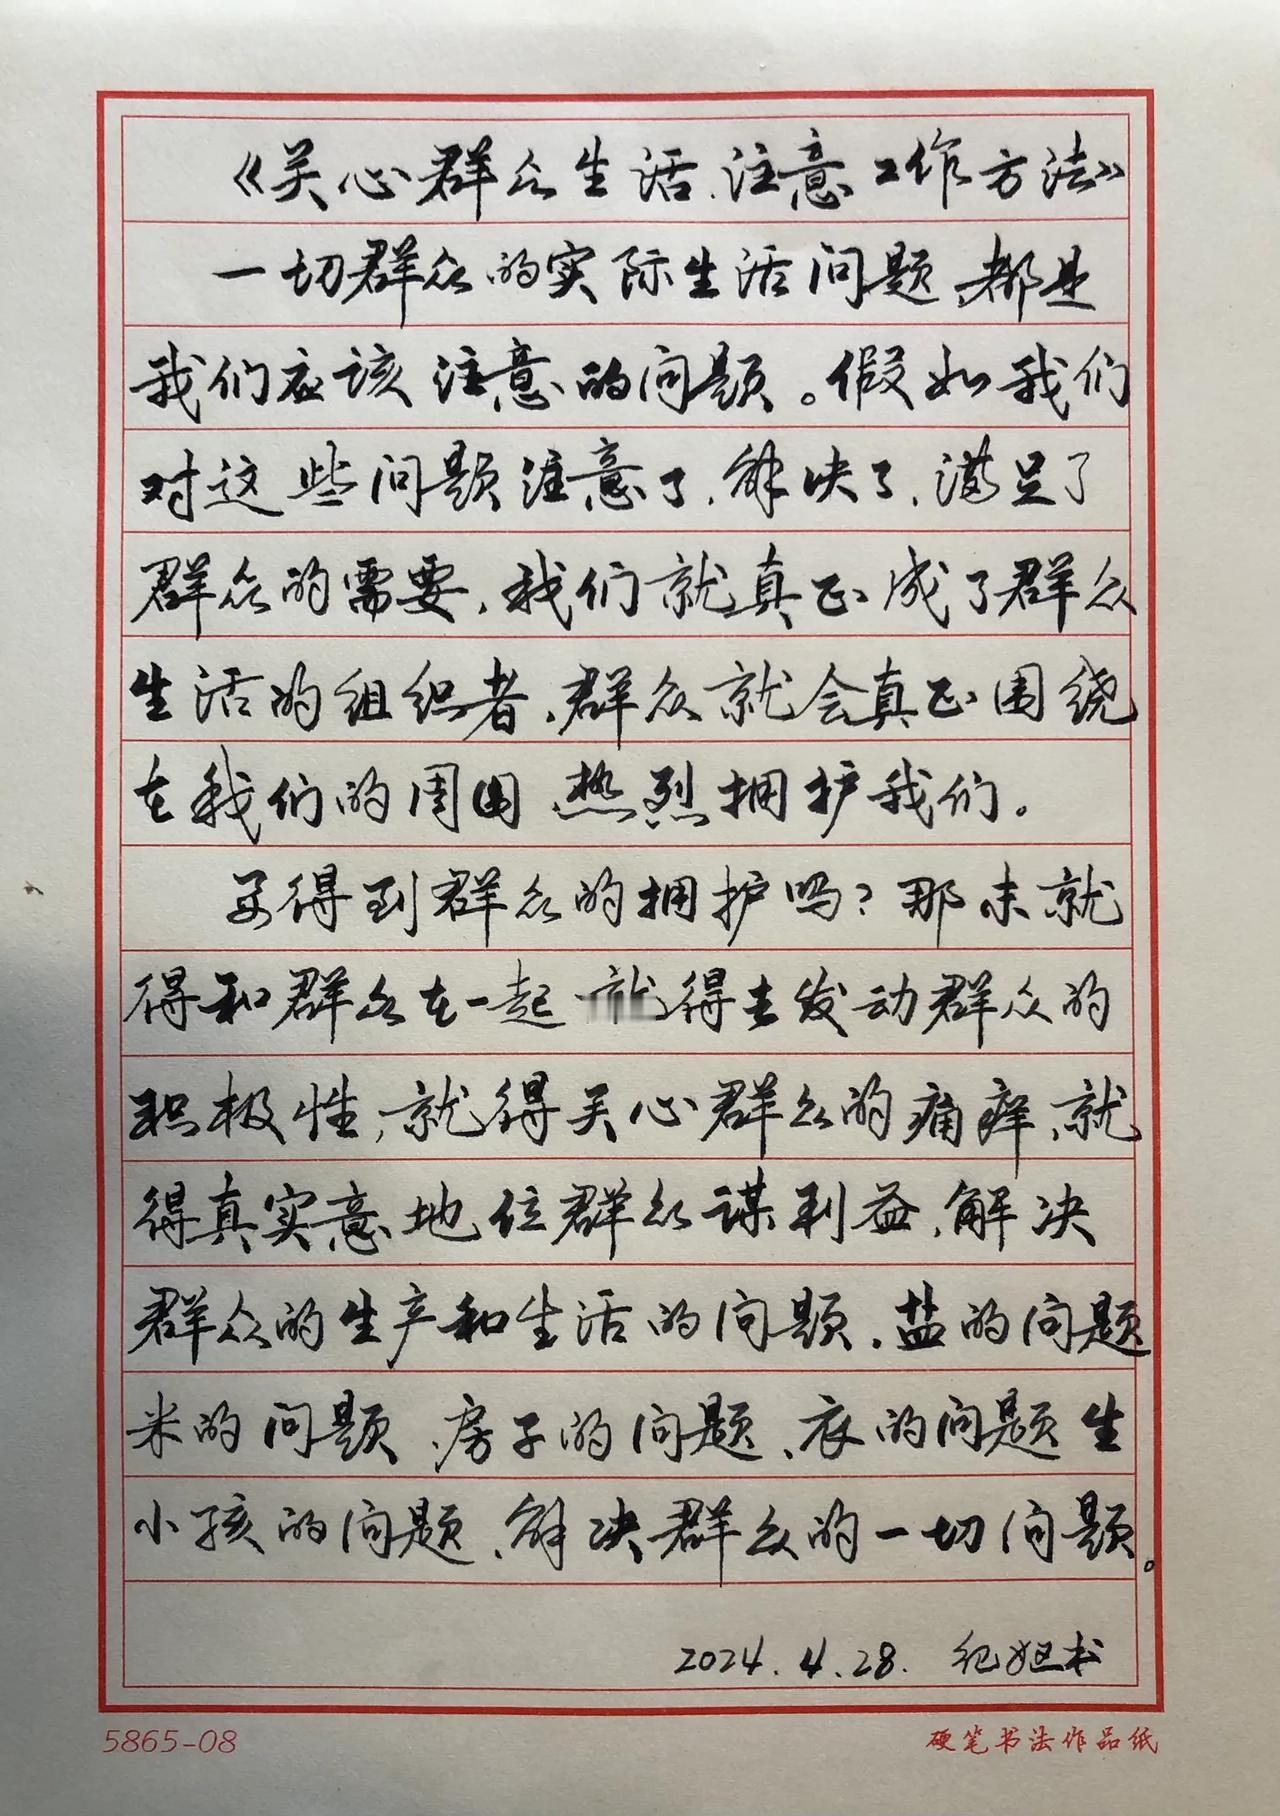 《关心群众生活、注意工作方法》
一切群众的实际生活问题，都是
我们应该注意的问题。假如我们
对这些问题注意了，解决了，满足了
群众的需要，我们就真正成了群众
生活的组织者，群众就会真正围绕
在我们的周围，热烈拥护我们。
要得到群众的拥护吗？那末就
得和群众在一起 就得去发动群众的
积极性，就得关心群众的痛痒，就
得真实意地位群众谋利益，解决
群众的生产和生活的问题，盐的问题
米的问题，房子的问题，衣的问题生
小孩的问题，解决群众的一切问题。
2024.4.28. 书
5865-08
硬笔书法作品纸